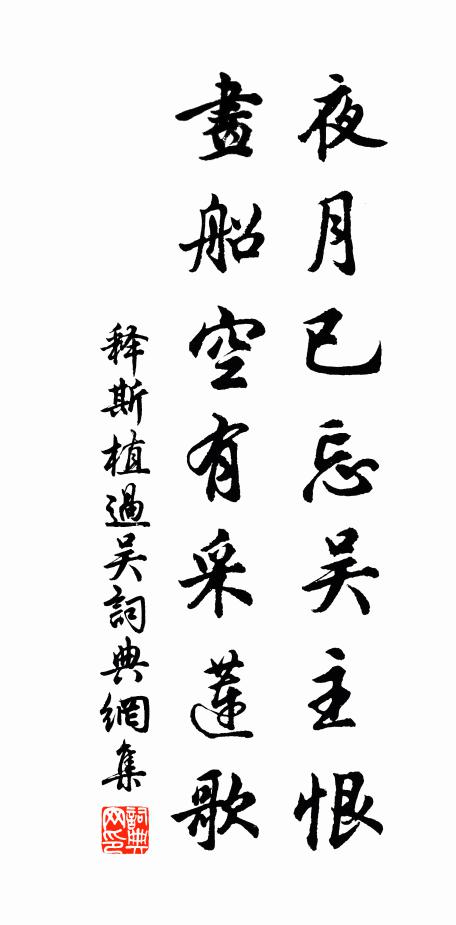 夜月已忘吴主恨
畫船空有采蓮歌
释斯植過吴詞典網集
詞典網印